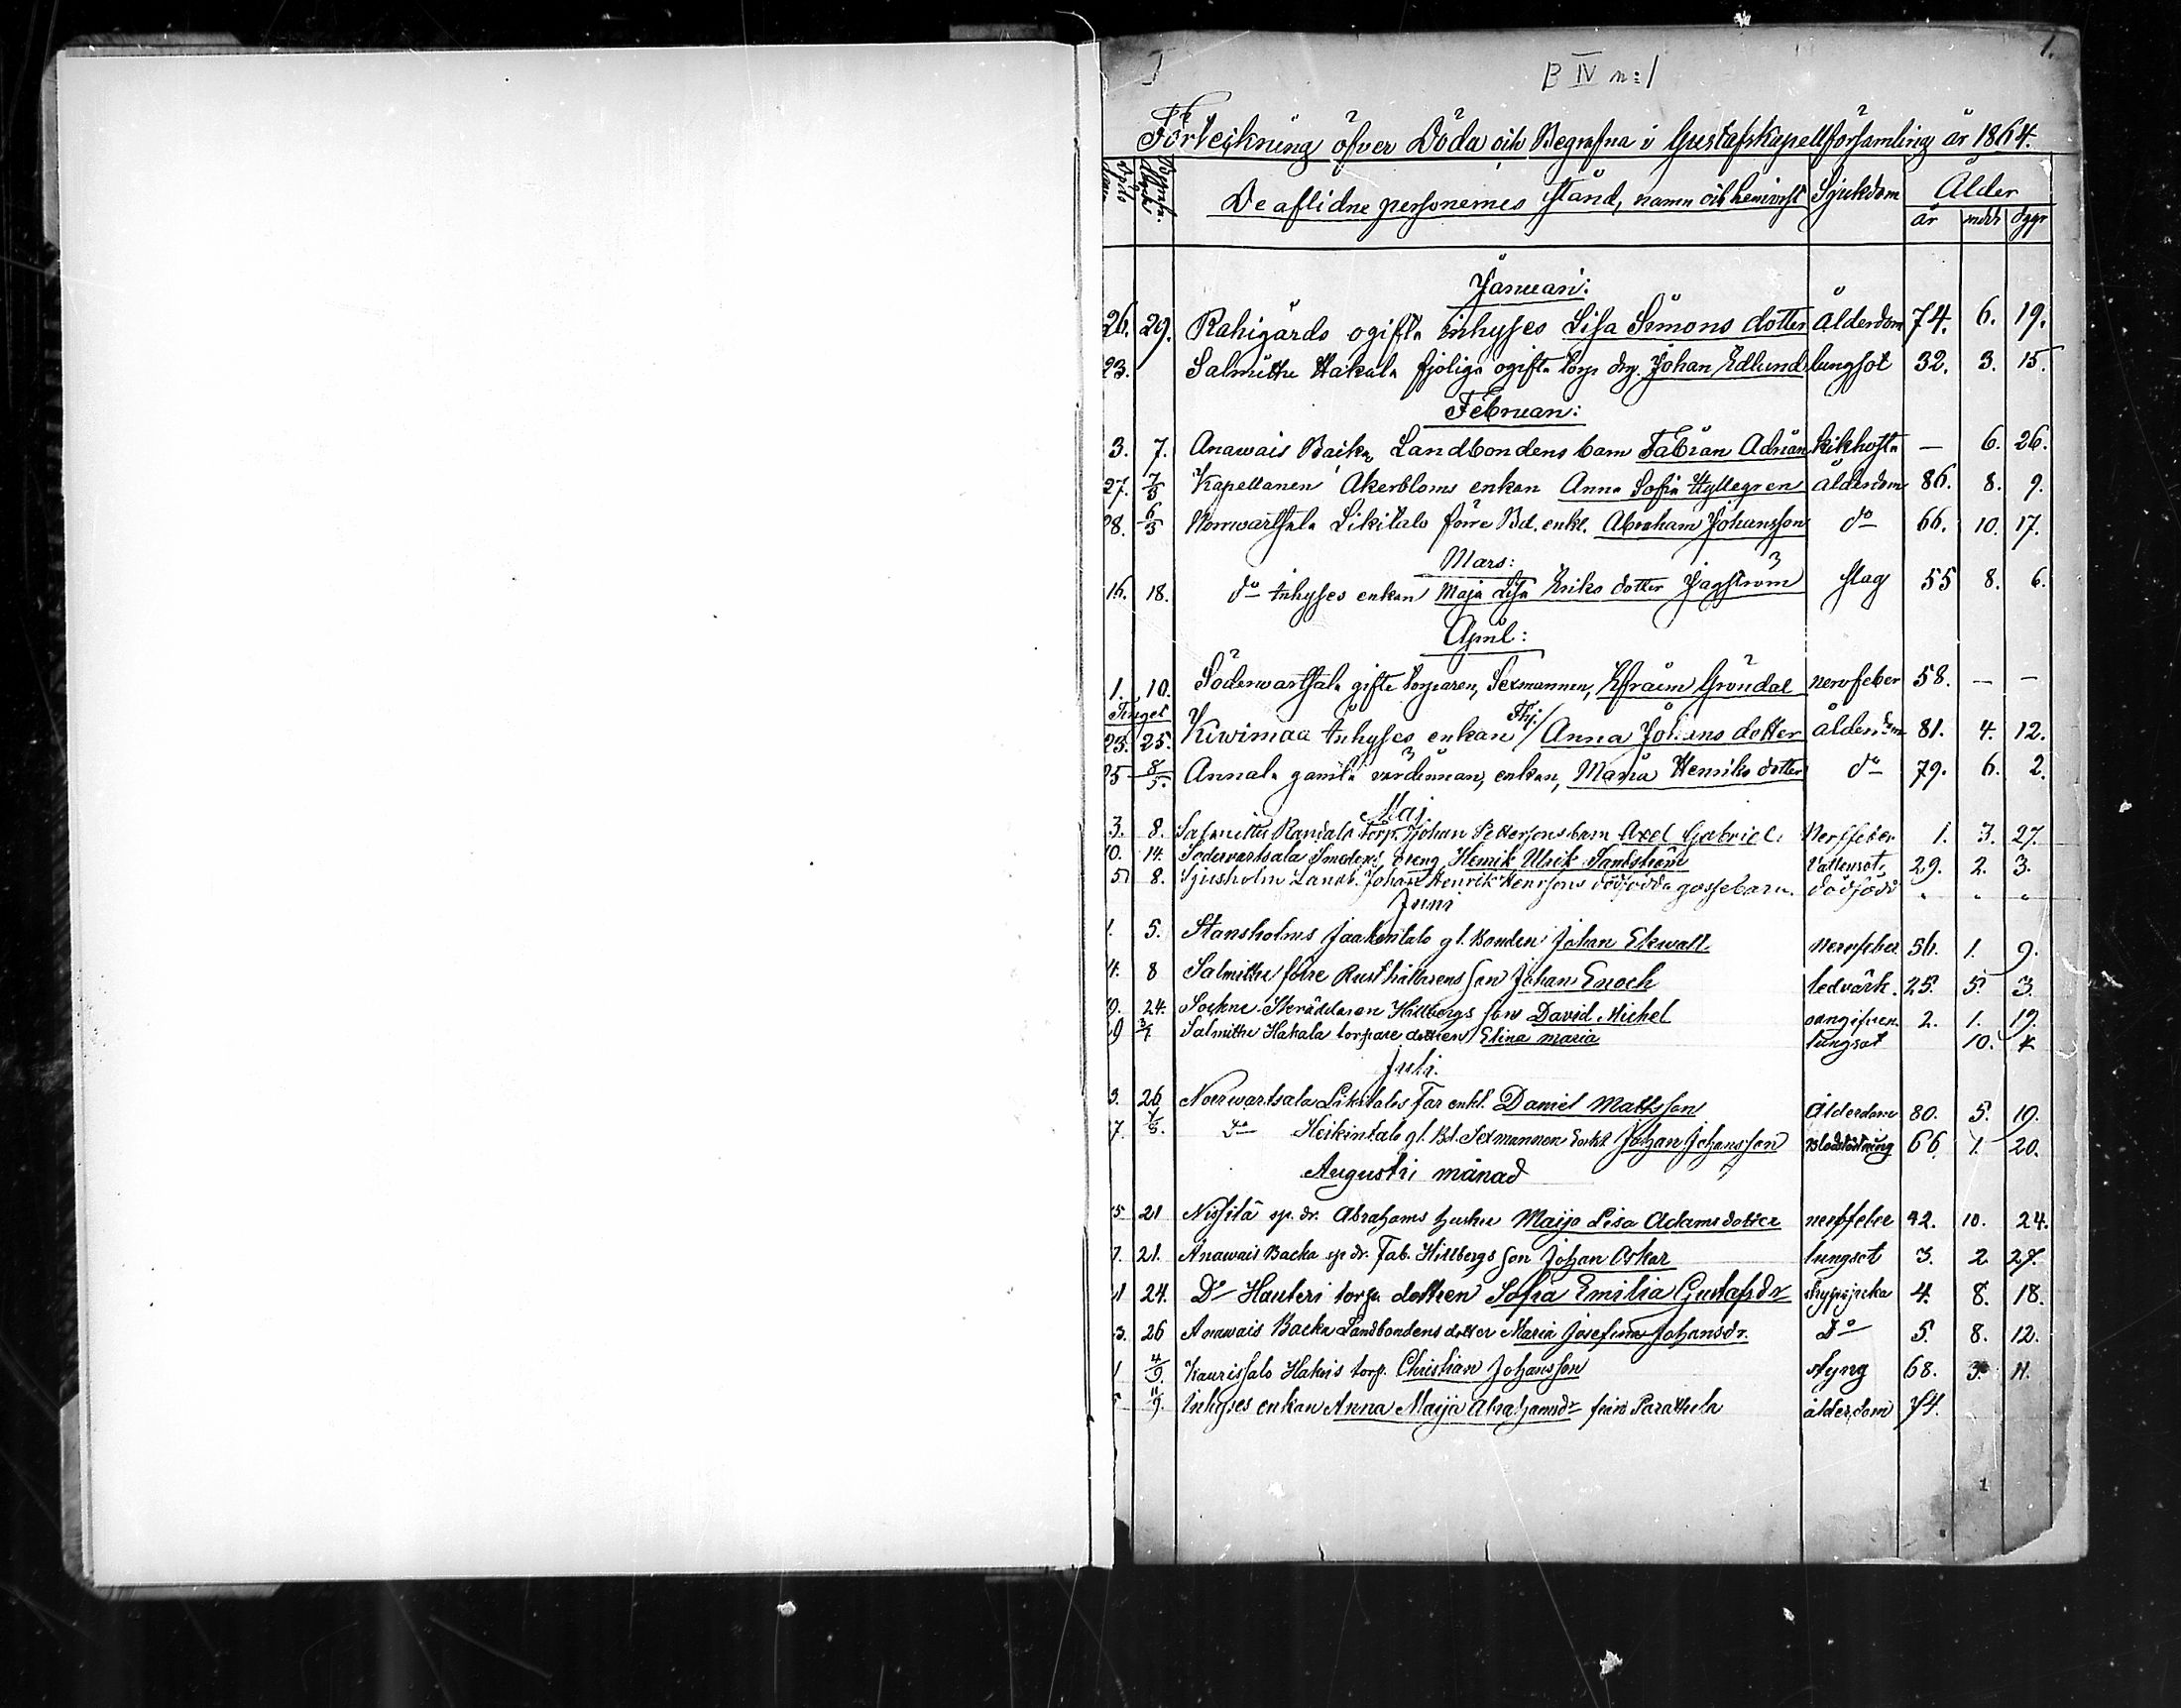 I
B IV n:1
1.
Förteckning öfver Döda och Begrafna i Gustafs kapellförsamling år 1864.
De aflidne personernes stånd, namn och hemvist Sjukdom Ålder
år mdr dygr
Januari:
26. 29. Rahigårds ogifta inhyses Lisa Simons dotter ålderdom 74. 6. 19.
23. Salmitta Hakala fjoliga ogifta torp. drg. Johan Edlund lungsot 32. 3. 15.
Februari:
3. 7. Anawais Backa Landbondens barn Fabian Adrian kikhosta — 6. 26.
27. 7/3 Kapellanen Åkerbloms enkan Anna Sofia Hyllegren ålderdom 86. 8. 9.
28. 6/3 Norrwartsala Likitalo förre Bd. enkl. Abraham Johansson do 66. 10. 17.
Mars:
16. 18. do inhyses enkan Maja Lisa Eriks dotter Jagström slag 55 8. 6.
April:
1. 10. Söderwartsala gifte torparen, Sexmannen, Efraim Gröndal nervfeber 58. — —
23. 25. Kiwimaa inhyses enkan / Anna Johans dotter ålderdom 81. 4. 12.
25 8/5. Annala gamla värdinnan, enkan, Maria Henriks dotter do 79. 6. 2.
Maj
3. 8. Salmittu Randala Torp. Johan Pettersons barn Axel Gabriel Nervfeber 1. 3. 27.
10. 14. Söderwartsala Smedens dreng Henrik Ulrik Sandström Vattensot 29. 2. 3.
5 8. Sjusholm Landb. Johan Henrik Henrsons dödfödda gossebarn. dödfödd " " "
Juni
1. 5. Stansholms Jaakontalo gl. Bonden Johan Ekwall. Nervfeber 56. 1. 9.
4. 8 Salmittu förre Rusthållarens son Johan Enoch ledvärk. 25. 5. 3.
24. Sockne Skräddaren Hillbergs son David Michel oangifven. 2. 1. 19.
9 3/7 Salmittu Hakala torpare dottren Elina Maria lungsot 10. 4
Juli.
3. 26 Norrwartsala Likitalos Far enkl. Daniel Mattsson Ålderdom 80. 5. 19.
7. 1/8. Do Heikintalo gl. Bd. Sexmannen Enkl Johan Johansson Blodstörtning 66 1. 20.
Augusti månad
5 21 Nissilä sp. dr. Abrahams hustru Maija Lisa Adamsdotter nervfeber 42. 10. 24.
7. 21. Anawais Backa sp dr. Fab. Hillbergs son Johan Oskar lungsot 3. 2. 27.
11 24. Do Hauteri torp. dottren Sofia Emilia Gustafsdr strypsjuka 4. 8. 18.
3. 26 Anawais Backa Landbondens dotter Maria Josefina Johansdr. Do 5. 8. 12.
1 4/9. Kaurissalo Hakuis torp. Christian Johansson Styng 68. 3. 11.
5 11/9. Inhyses enkan Anna Maija Abrahamsdr från Parattula ålderdom 74.
1